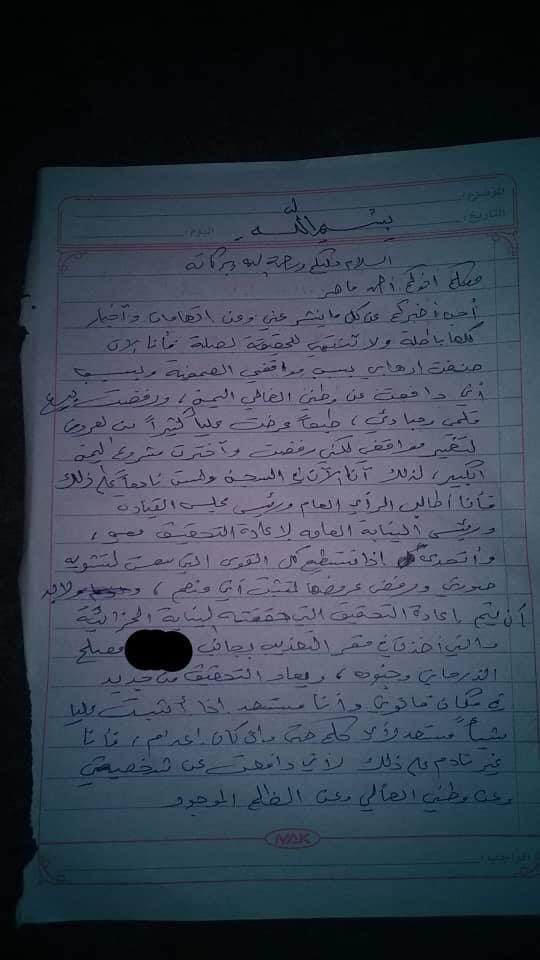 الموضوع:
التاريخ: اليوم:
بسم الله
السلام عليكم ورحمة الله وبركاته
معكم أخوكم أحمد ماهر
أحب أخبركم عن كل ما ينشر عني وعن اتهامات وأخبار
كلها باطلة ولا تنتمي للحقيقة بصلة فأنا الآن
صنفت إرهابي بسبب مواقفي الصحفية وبسبب
أني دافعت عن وطني الغالي اليمن، ورفضت بيع
قلمي ومبادئي، طبعاً عرضت عليا كثيراً من العروض
لتغيير مواقفي لكن رفضت واخترت مشروع اليمن
الكبير، لذلك أنا الآن في السجن ولست نادماً على ذلك
فأنا أطالب الرأي العام ورئيس مجلس القيادة
ورئيس النيابة العامة لإعادة التحقيق معي،
وأتحدى إذا تستطيع كل القوى التي سعت لتشويه
صورتي ورفض عروضها لتثبت أي منهم، ولابد
أن يتم إعادة التحقيق التي حققته النيابة الجزائية
والتي أخذت في مقر التعذيب بجانب مصلح
الذرحاني وجنوده، ويعاد التحقيق من جديد
في مكان قانوني وأنا مستعد إذا أثبتت عليا
شيئاً مستعد لأي حكم حتى وإن كان إعدام، فأنا
غير نادم على ذلك لأني دافعت عن شخصيتي
وعن وطني الغالي وعن الظلم الموجود
NAK
الواجب: